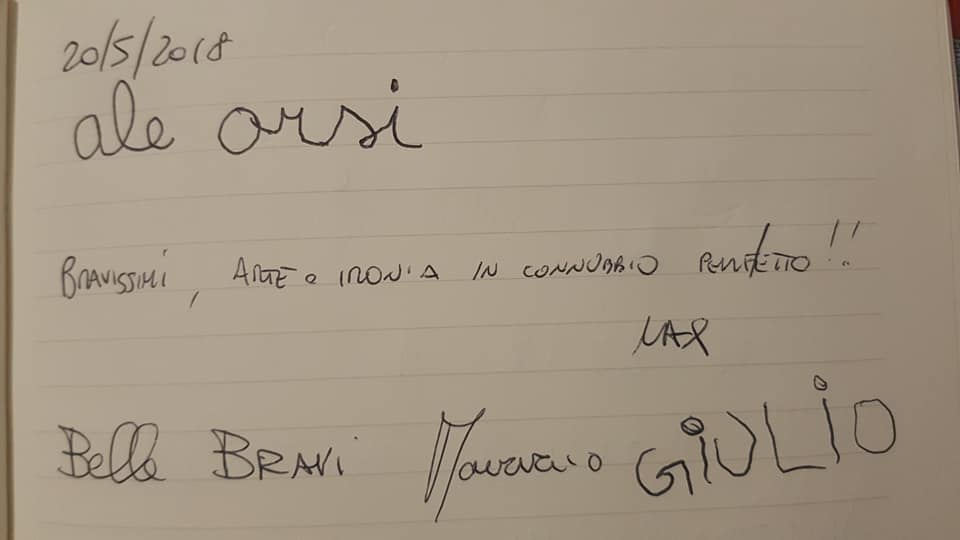 20/5/2018
ale orsi
BRAVISSIMI, ARTE e IRONIA IN CONNUBBIO PERFETTO!!
MAX
Bello BRAVI GIULIO